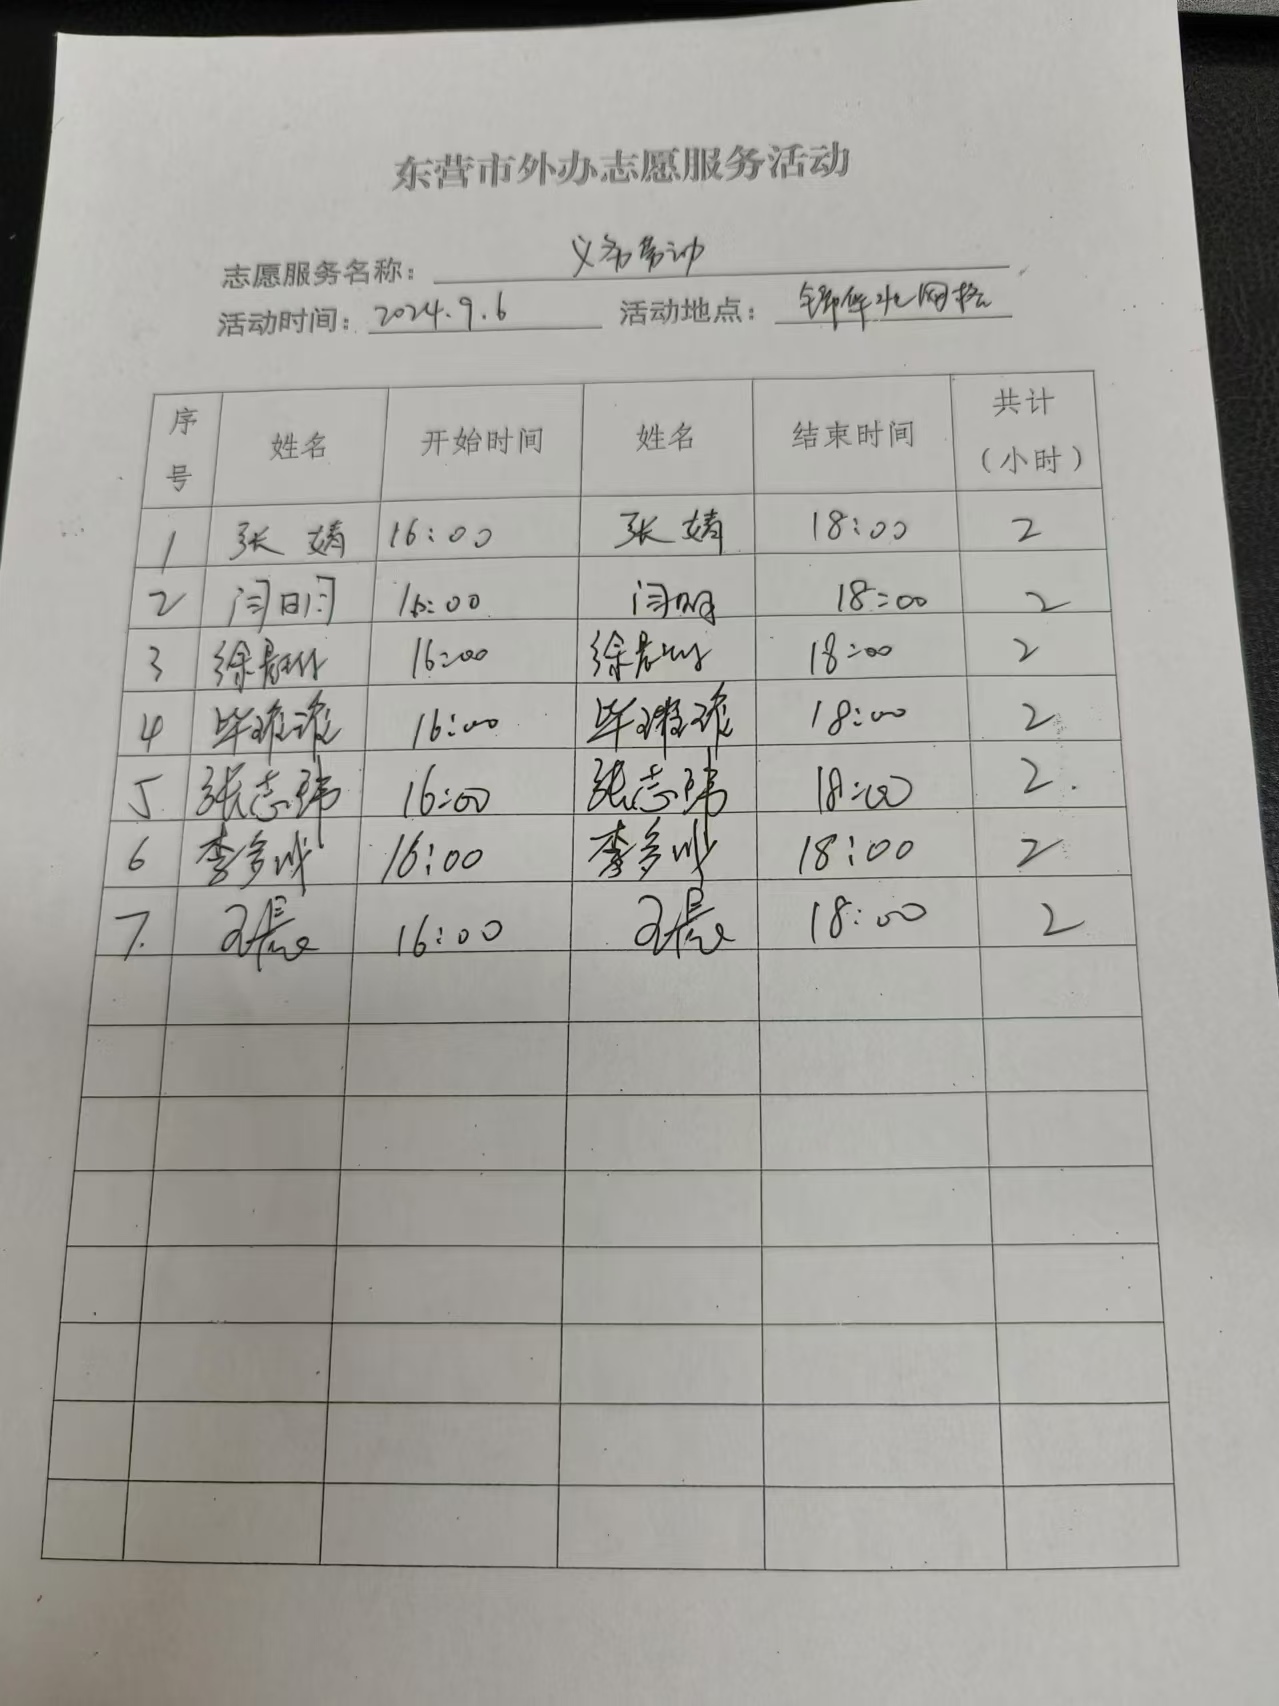 东营市外办志愿服务活动
志愿服务名称： 义务劳动
活动时间：2024.9.6 活动地点：锦华北网格
序号 姓名 开始时间 姓名 结束时间 共计（小时）
1 张婧 16:00 张婧 18:00 2
2 闫明 16:00 闫明 18:00 2
3 徐 16:00 徐 18:00 2
4 毕 16:00 毕 18:00 2
5 张志玮 16:00 张志玮 18:00 2
6 李多 16:00 李多 18:00 2
7 16:00 18:00 2